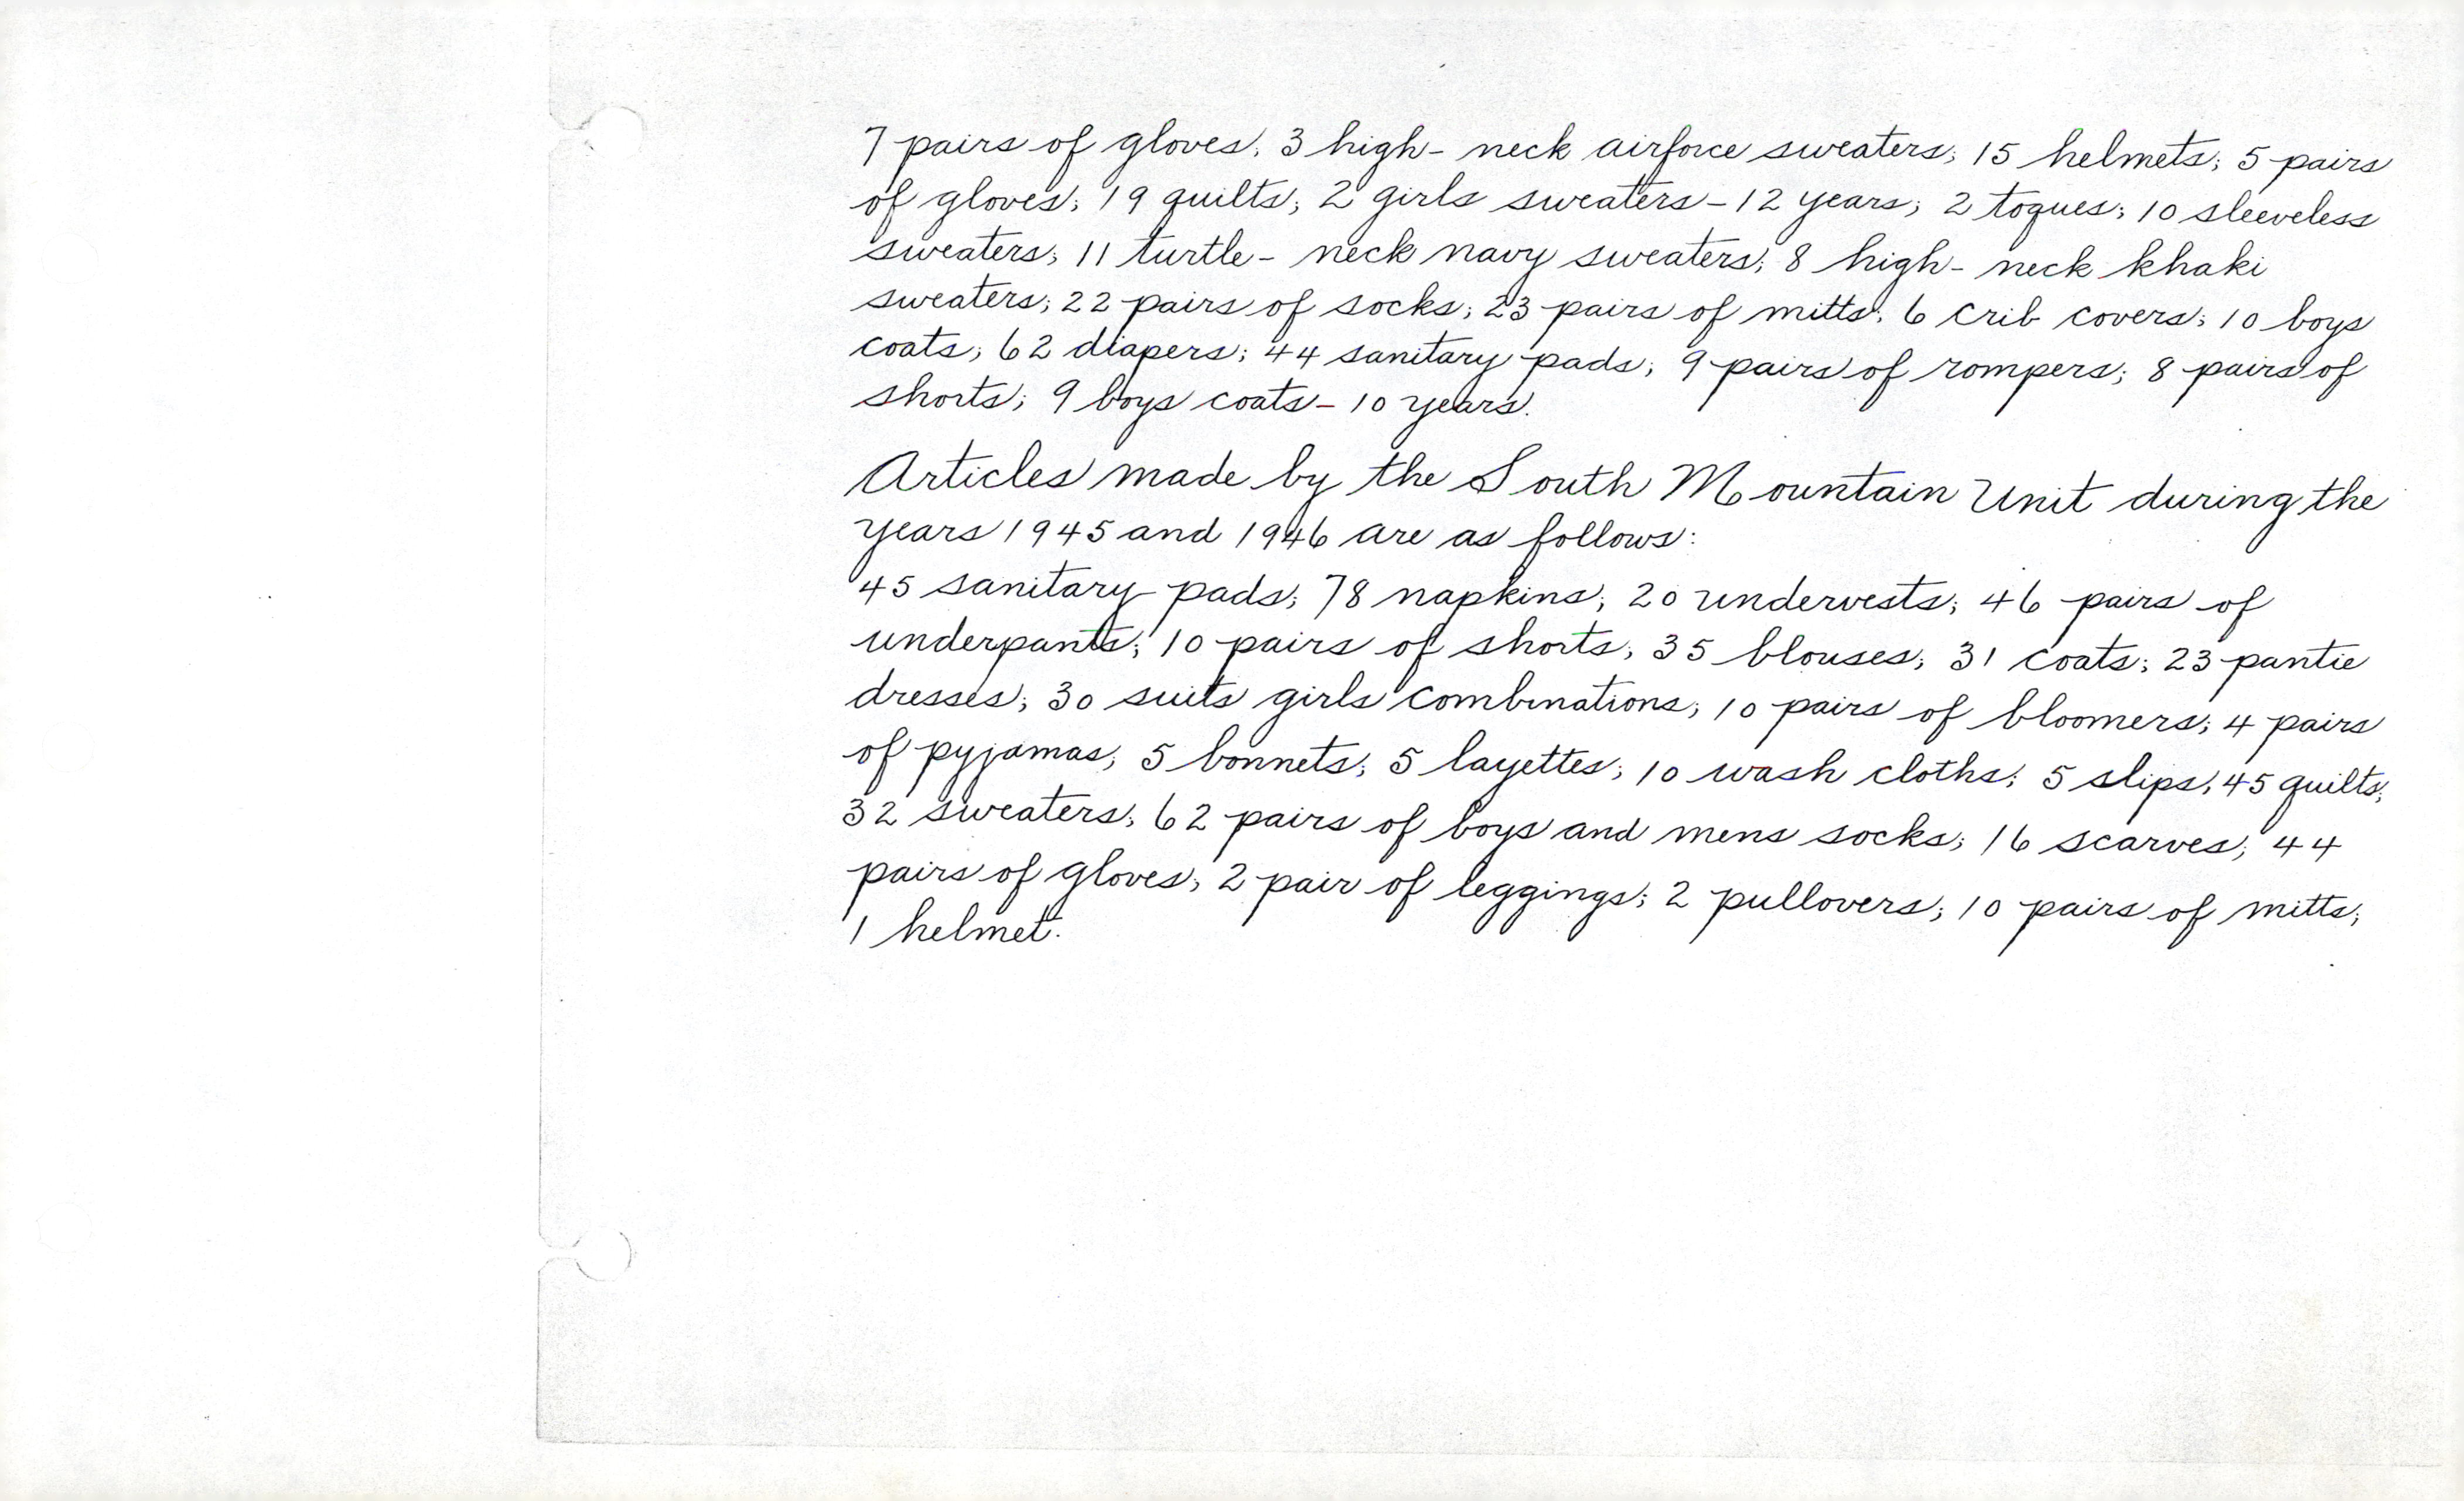 7 pairs of gloves; 3 high-neck airforce sweaters; 15 helmets; 5 pairs
of gloves; 19 quilts; 2 girls sweaters - 12 years; 2 toques; 10 sleeveless
sweaters; 11 turtle-neck navy sweaters; 8 high-neck khaki
sweaters; 22 pairs of socks; 23 pairs of mitts; 6 crib covers; 10 boys
coats; 62 diapers; 44 sanitary pads; 9 pairs of rompers; 8 pairs of
shorts; 9 boys coats - 10 years.
Articles made by the South Mountain Unit during the
years 1945 and 1946 are as follows:
45 sanitary pads; 78 napkins; 20 undervests; 46 pairs of
underpants; 10 pairs of shorts; 35 blouses; 31 coats; 23 pantie
dresses; 30 suits girls combinations; 10 pairs of bloomers; 4 pairs
of pyjamas; 5 bonnets; 5 layettes; 10 wash cloths; 5 slips; 45 quilts;
32 sweaters; 62 pairs of boys and mens socks; 16 scarves; 44
pairs of gloves; 2 pair of leggings; 2 pullovers; 10 pairs of mitts;
1 helmet.